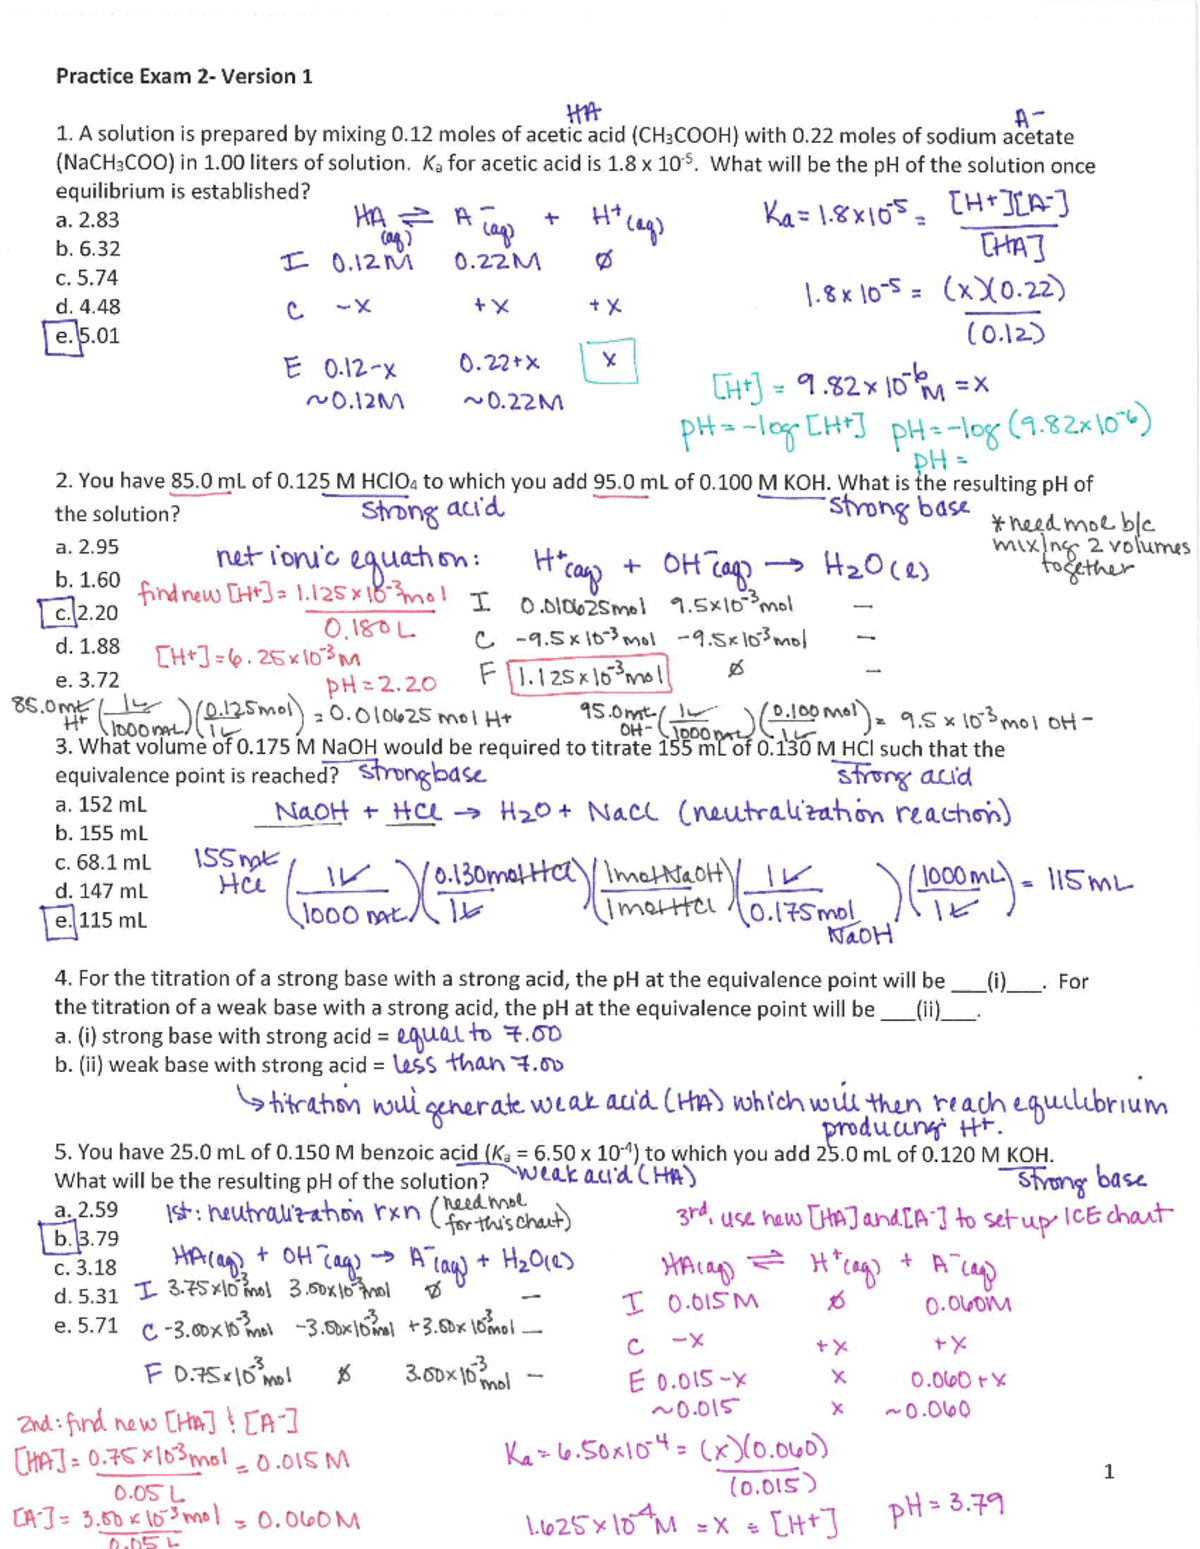 Practice Exam 2- Version 1
HA
A⁻
1. A solution is prepared by mixing 0.12 moles of acetic acid (CH₃COOH) with 0.22 moles of sodium acetate
(NaCH₃COO) in 1.00 liters of solution. Kₐ for acetic acid is 1.8 x 10⁻⁵. What will be the pH of the solution once
equilibrium is established?
a. 2.83
b. 6.32
c. 5.74
d. 4.48
e. 5.01
HA(aq) ⇌ A⁻(aq) + H⁺(aq)
I 0.12M 0.22M ∅
C -x +x +x
E 0.12-x 0.22+x x
~0.12M ~0.22M
Ka = 1.8x10⁻⁵ = [H+][A-]/[HA]
1.8x10⁻⁵ = (x)(0.22)/(0.12)
[H+] = 9.82x10⁻⁶M = x
pH = -log[H+] pH = -log(9.82x10⁻⁶)
pH =
2. You have 85.0 mL of 0.125 M HClO₄ to which you add 95.0 mL of 0.100 M KOH. What is the resulting pH of
the solution?
strong acid
strong base
*need mol b/c
mixing 2 volumes
together
a. 2.95
b. 1.60
c. 2.20
d. 1.88
e. 3.72
net ionic equation: H⁺(aq) + OH⁻(aq) → H2O(l)
I 0.010625mol 9.5x10⁻³mol —
C -9.5x10⁻³mol -9.5x10⁻³mol —
F 1.125x10⁻³mol ∅ —
find new [H+] = 1.125x10⁻³mol/0.180L
[H+] = 6.25x10⁻³M
pH = 2.20
85.0mL H+ (1L/1000mL)(0.125mol/1L) = 0.010625 mol H+
95.0mL OH- (1L/1000mL)(0.100mol/1L) = 9.5x10⁻³ mol OH-
3. What volume of 0.175 M NaOH would be required to titrate 155 mL of 0.130 M HCl such that the
equivalence point is reached?
strong base
strong acid
a. 152 mL
b. 155 mL
c. 68.1 mL
d. 147 mL
e. 115 mL
NaOH + HCl → H2O + NaCl (neutralization reaction)
155mL HCl (1L/1000mL)(0.130mol HCl/1L)(1mol NaOH/1mol HCl)(1L/0.175mol NaOH)(1000mL/1L) = 115mL
4. For the titration of a strong base with a strong acid, the pH at the equivalence point will be ___(i)___. For
the titration of a weak base with a strong acid, the pH at the equivalence point will be ___(ii)___.
a. (i) strong base with strong acid = equal to 7.00
b. (ii) weak base with strong acid = less than 7.00
↳ titration will generate weak acid (HA) which will then reach equilibrium
producing H+.
5. You have 25.0 mL of 0.150 M benzoic acid (Kₐ = 6.50 x 10⁻⁴) to which you add 25.0 mL of 0.120 M KOH.
What will be the resulting pH of the solution?
weak acid (HA)
strong base
a. 2.59
b. 3.79
c. 3.18
d. 5.31
e. 5.71
1st: neutralization rxn (need mol
for this chart)
HA(aq) + OH⁻(aq) → A⁻(aq) + H2O(l)
I 3.75x10⁻³mol 3.00x10⁻³mol ∅ —
C -3.00x10⁻³mol -3.00x10⁻³mol +3.00x10⁻³mol —
F 0.75x10⁻³mol ∅ 3.00x10⁻³mol —
2nd: find new [HA] & [A-]
[HA] = 0.75x10⁻³mol/0.05L = 0.015M
[A-] = 3.00x10⁻³mol/0.05L = 0.060M
3rd, use new [HA] and [A-] to set up ICE chart
HA(aq) ⇌ H⁺(aq) + A⁻(aq)
I 0.015M ∅ 0.060M
C -x +x +x
E 0.015-x x 0.060+x
~0.015 x ~0.060
Ka = 6.50x10⁻⁴ = (x)(0.060)/(0.015)
1.625x10⁻⁴M = x = [H+]
pH = 3.79
1